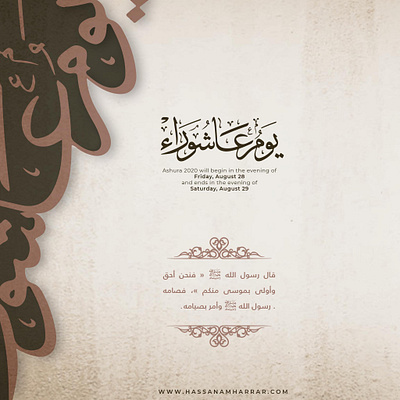 يَوْمُ عَاشُورَاءْ
Ashura 2020 will begin in the evening of
Friday, August 28
and ends in the evening of
Saturday, August 29
قال رسول الله ﷺ « فنحن أحق
وأولى بموسى منكم »، فصامه
رسول الله ﷺ وأمر بصيامه .
WWW.HASSANAMHARRAR.COM